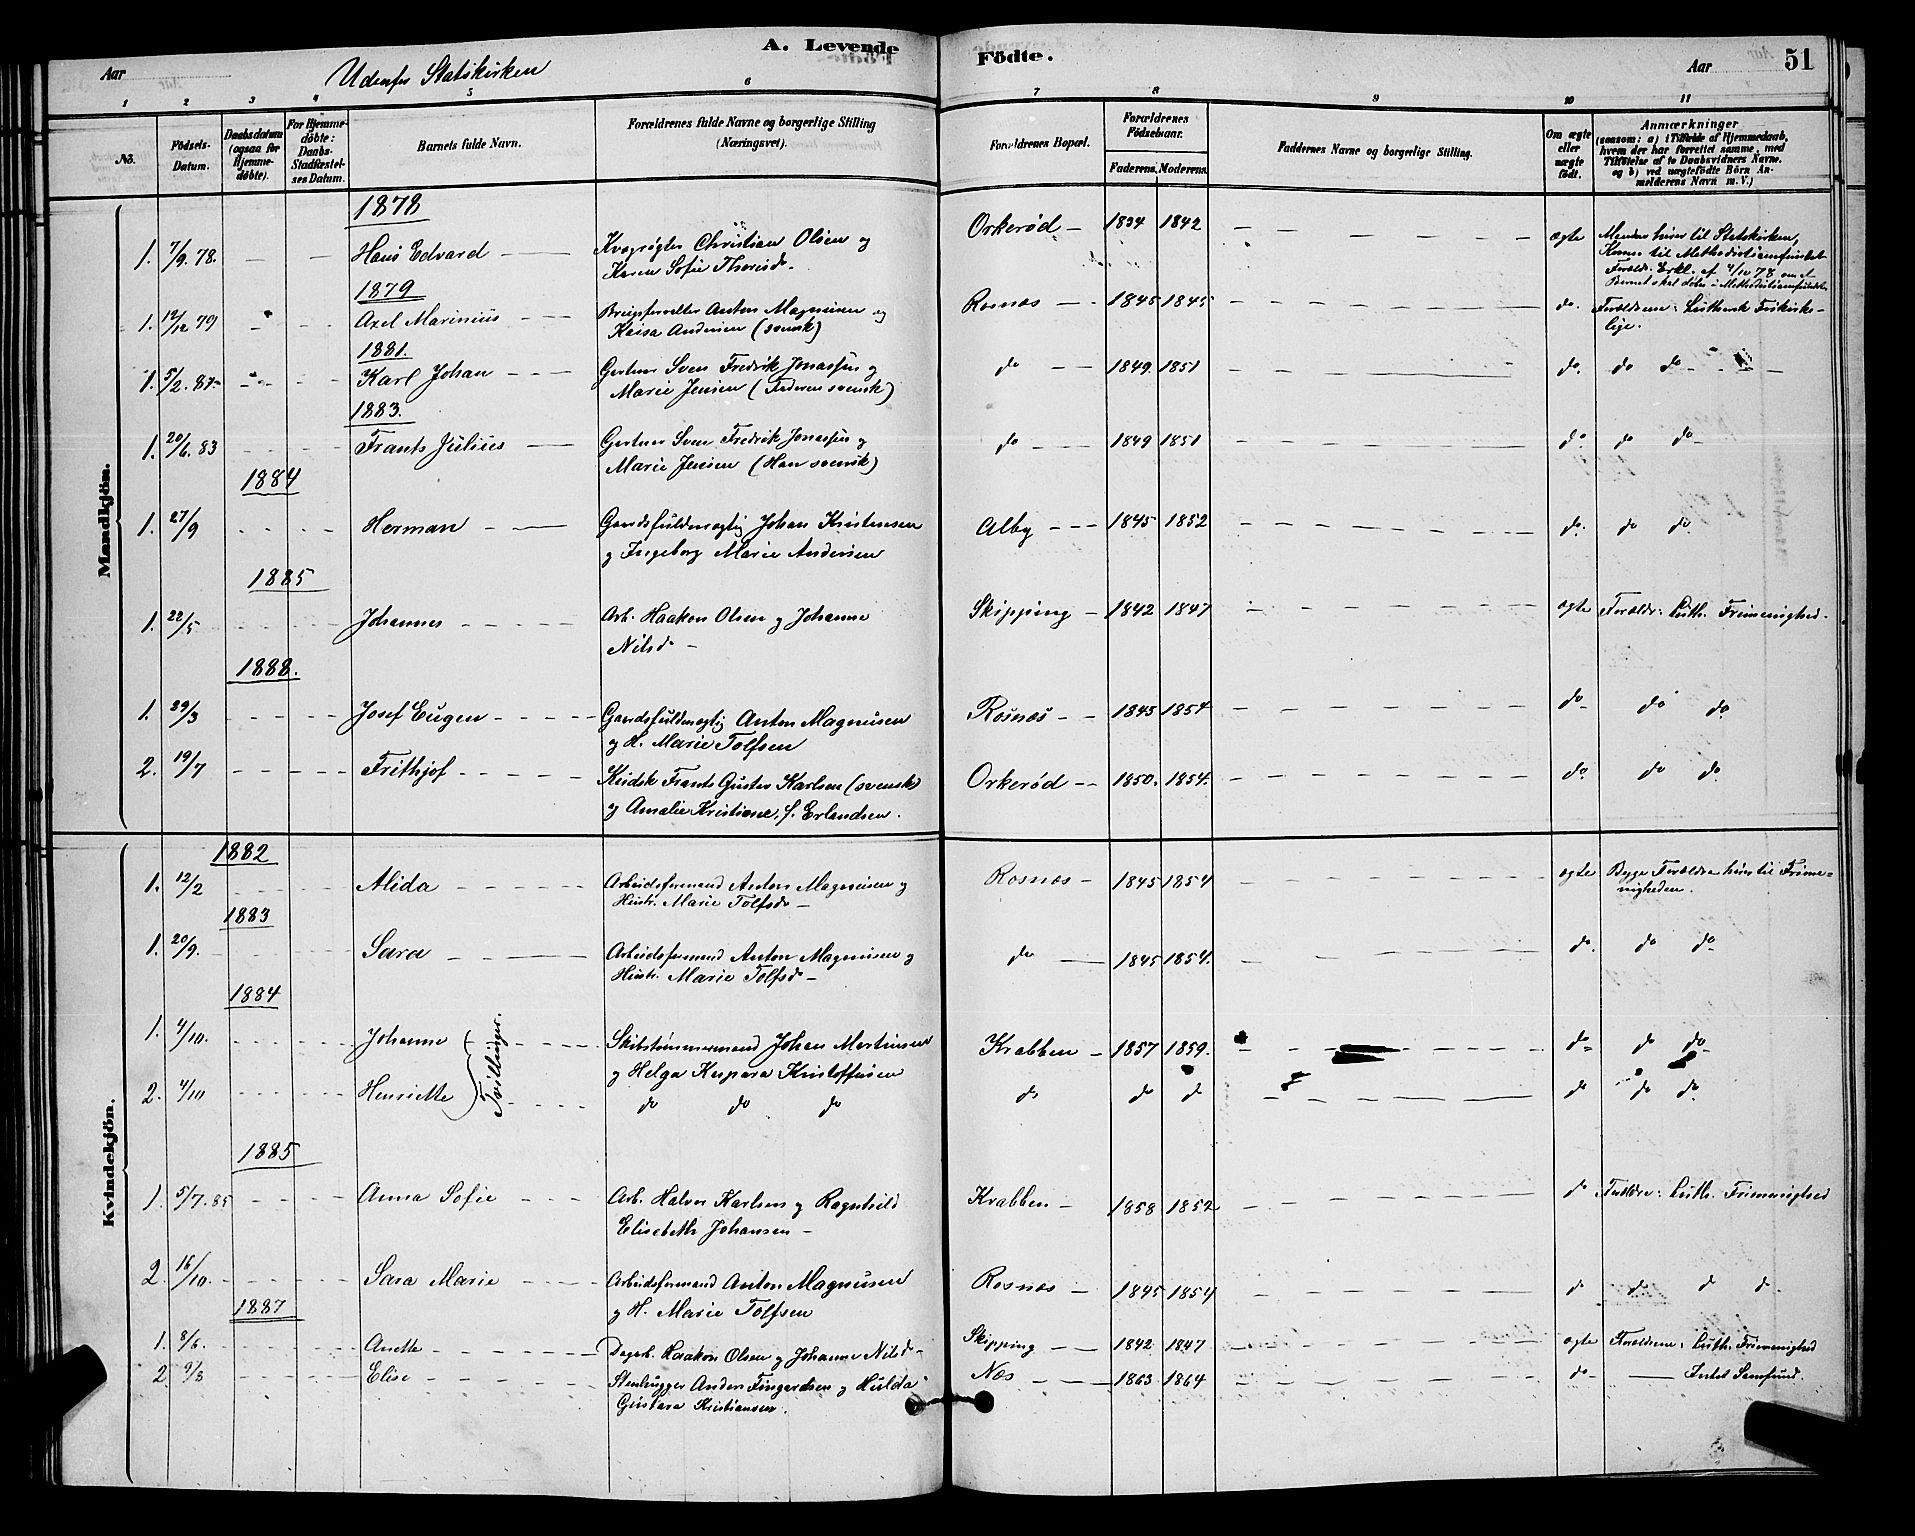 A. Levende Födte.
Aar
Udenfor Statskirken
Aar
51
1 2 3 4 5 6 7 8 9 10 11
No.
Födsels-Datum.
Daabsdatum (ogsaa for Hjemme-döbte).
For Hjemme-döbte: Daabs-Stadfæstel-ses Datum.
Barnets fulde Navn.
Forældrenes fulde Navne og borgerlige Stilling (Næringsvei).
Forældrenes Bopæl.
Forældrenes Födselsaar.
Faderens. Moderens.
Faddernes Navne og borgerlige Stilling.
Om ægte eller uægte födt.
Anmærkninger (saasom: a) i Tilfælde af Hjemmedaab, hvem der har forrettet samme, med Tilföielse af to Daabsvidners Navne, og b) ved uægtefödte Börn An-melderens Navn m. V.)
Mandkjön.
1878
1. 7/9. 78. Hans Edvard Christian Olsen og Orkerød 1834 1842 ægte
Karen Sofie Thoresd.
til Statskirken,
Kone til Methodistsamfundet
1879
1. 12/12 79 Axel Marinius Anton Magnusen og Rosnæs 1845 1845 do. Forældrene: Luthersk Frikirke-
Kaisa Andersen (svensk) lige.
1881.
1. 5/2. 81 Karl Johan Gartner Sven Fredrik Jonassen og do 1849 1851 do. do do
Marie Jensen (Faderen svensk)
1883.
1. 20/6. 83 Frants Julius Gartner Sven Fredrik Jonassen og do 1849 1851 do do do
Marie Jensen (Han svensk)
1884
1. 27/9 Herman Gaardsfuldmægtig Johan Kristensen Alby 1845 1852 do. do do
og Ingeborg Marie Andersen
1885
1. 22/5 Johannes Arb. Haakon Olsen og Johanne Skipping 1842 1847 ægte Forældr: Luth. Frimenighed.
Nilsd
1888.
1. 29/3 Josef Eugen Gaardsfuldmægtig Anton Magnusen Rosnæs 1845 1854 do do do
og H. Marie Tolfsen
2. 19/7 Frithjof Kudsk Frants Gustav Karlsen (svensk) Orkerød 1850. 1854. do do do
og Amalie Kristiane, f. Erlandsen.
Kvindekjön.
1882
1. 12/2 Alida Arbeidsformand Anton Magnusen og Rosnæs 1845 1854 ægte Begge Forældre hører til Frime-
Hustr. Marie Tolfsd nigheden.
1883
1. 20/9. Sara Arbeidsformand Anton Magnusen og do 1845 1854. do do do
Hustr. Marie Tolfsd
1884
1. 4/10. Johanne Tvillinger. Skibstømmermand Johan Martinsen Krabben 1857 1859. do do do
og Helga Kaspara Kristoffersen
2. 4/10 Henriette do do do do do do do do do
1885
1. 5/7. 85 Anna Sofie Arb. Halvor Karlsen og Ragnhild Krabben 1858 1852 do Forældre: Luth. Frimenighed
Elisebeth Johansen
2. 16/10. Sara Marie Arbeidsformand Anton Magnusen Rosnæs 1845 1854 do do do do
og H. Marie Tolfsen
1887
1. 8/6. Anette Dagarb. Haakon Olsen og Johanne Nilsd Skipping 1842 1847 ægte Forældrene: Luth. Frimenighed
2 9/8 Elise Stenhugger Anders Fingardsen og Hulda Næs 1863 1864 do Intet Samfund.
Gustava Kristiansen.